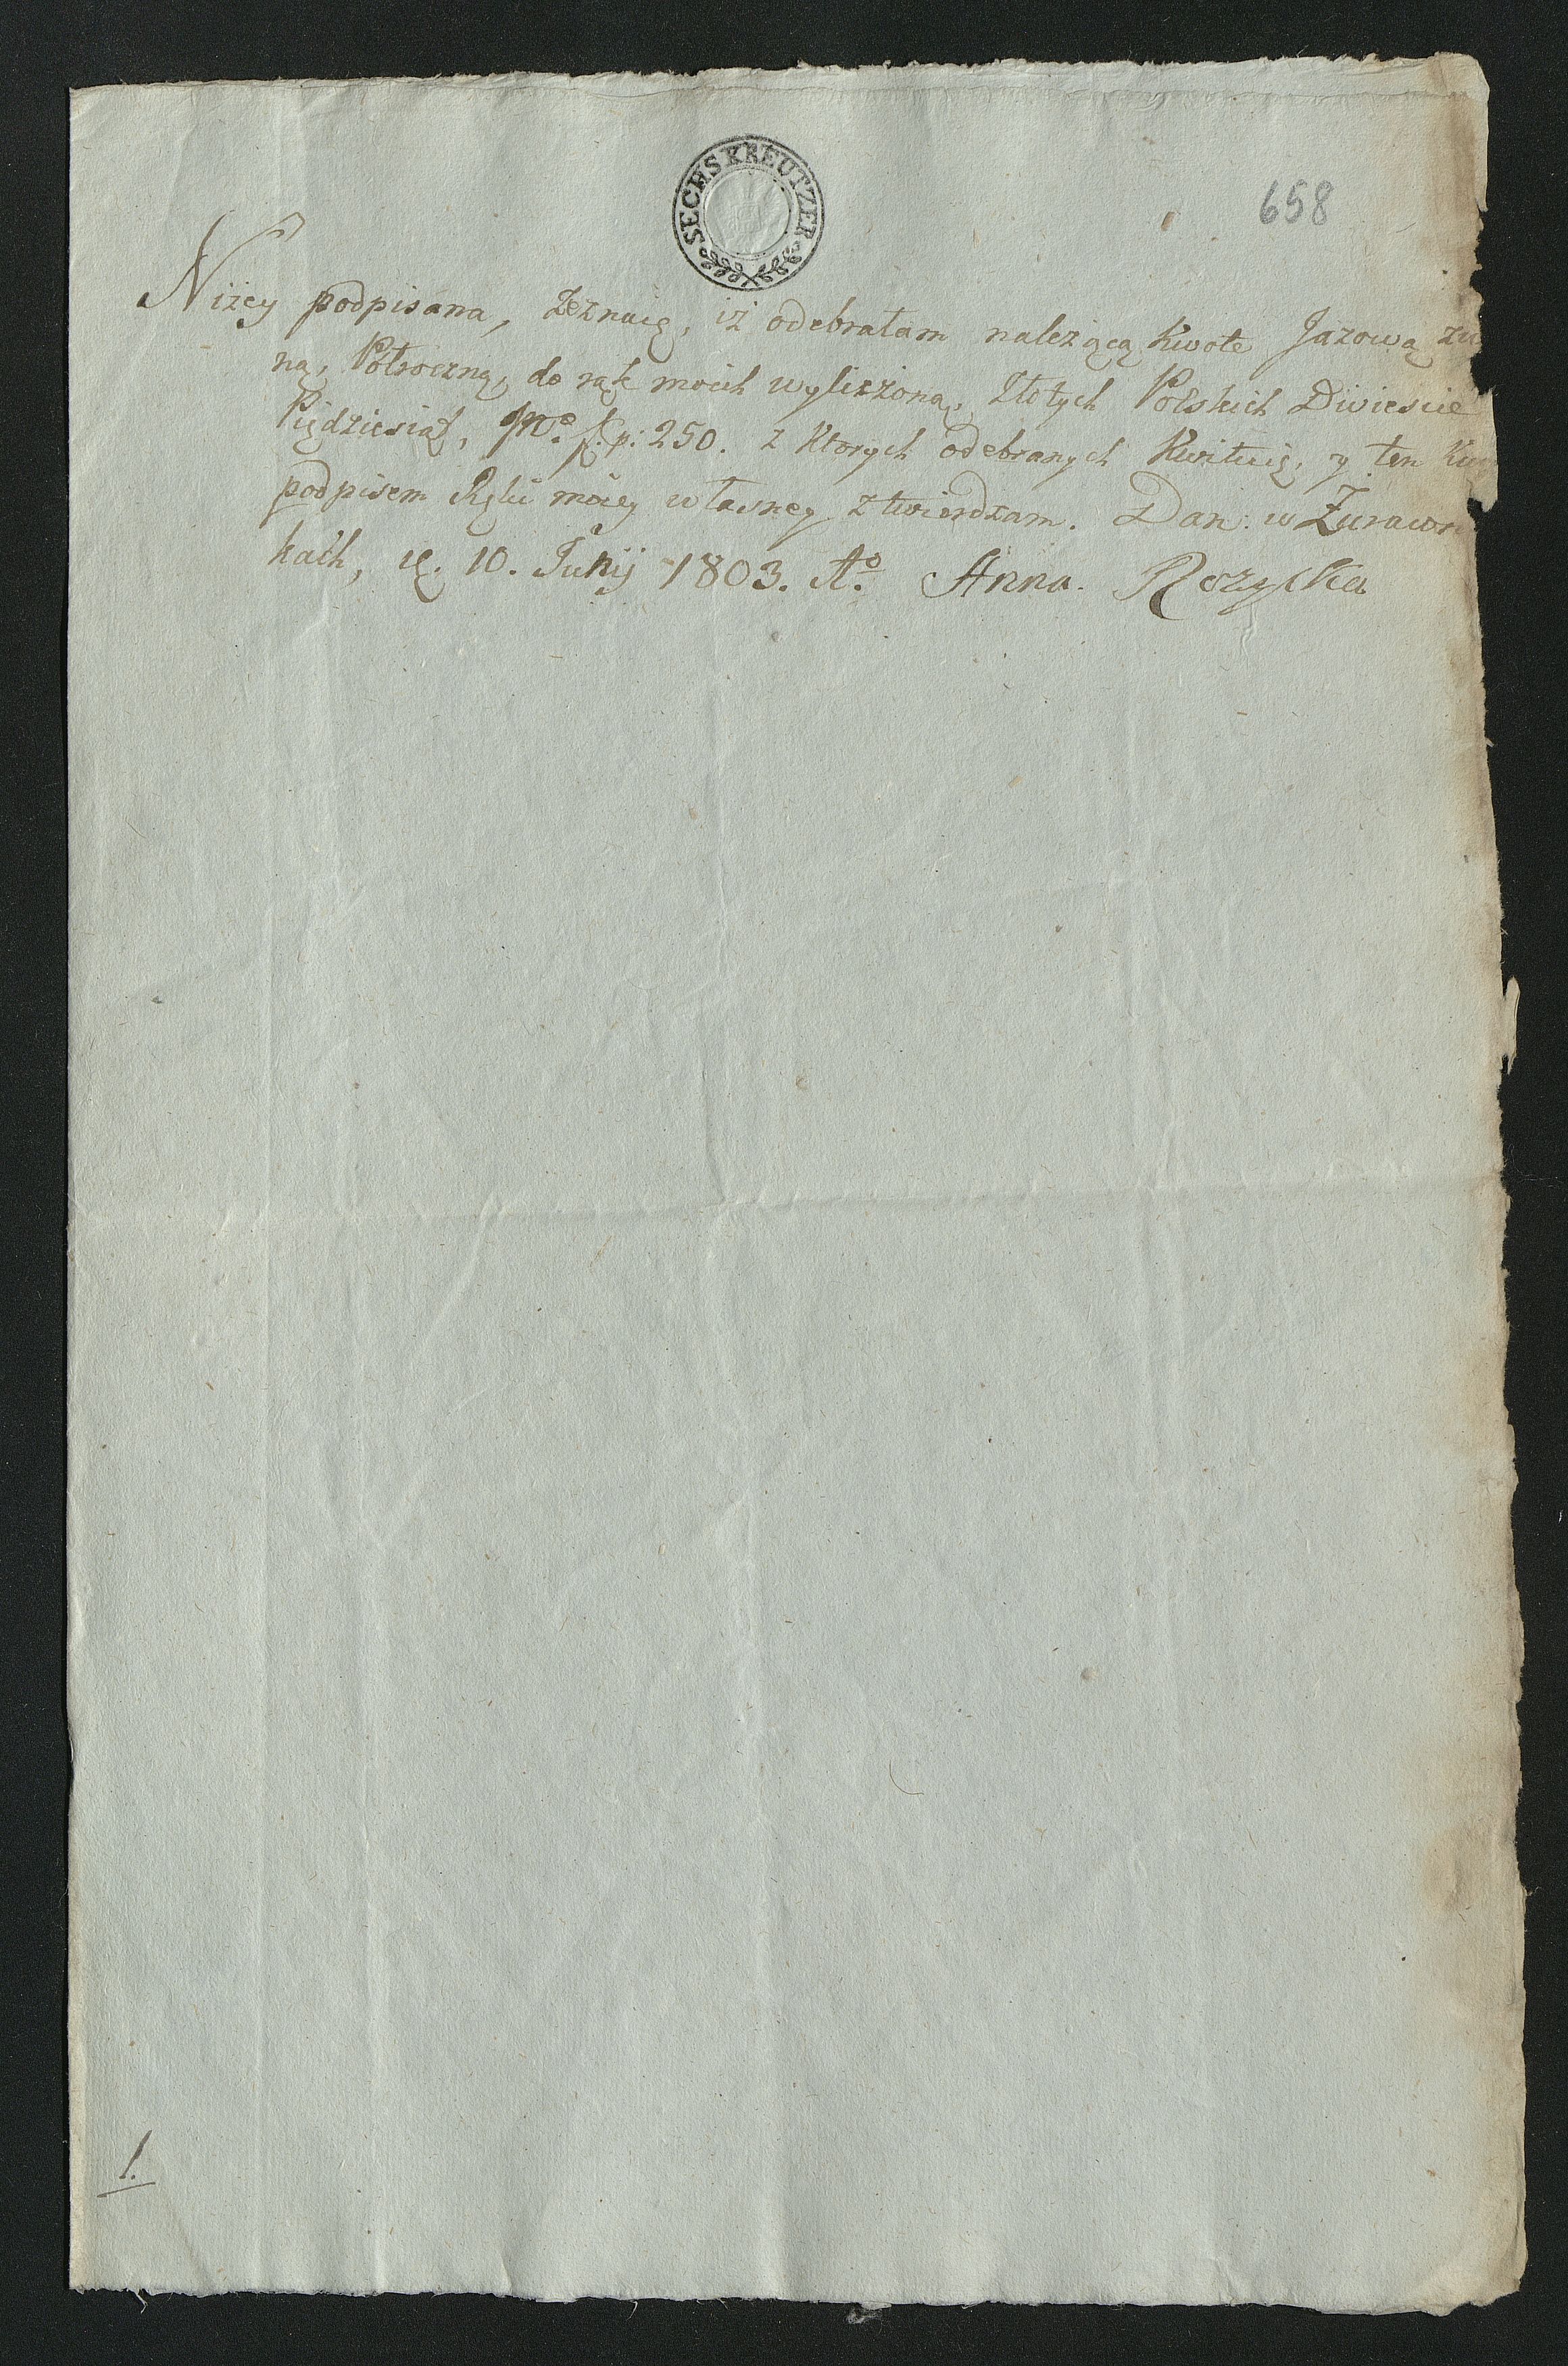 SECHS KREUTZER
658
Niżey podpisana, zeznaię, iż odebrałam należącą kwotę Jazową
ną, Półroczną, do rąk moich wyliczoną, Złotych Polskich Dwiescie
Pięдziesiąt, No. f.p: 250. z ktorych odebranych kwituię, y ten
podpisem Ręki moiey własney ztwierdzam. Dan: w Żurawn
kach, d. 10. Junij 1803. Ao. Anna Rozycka
1.